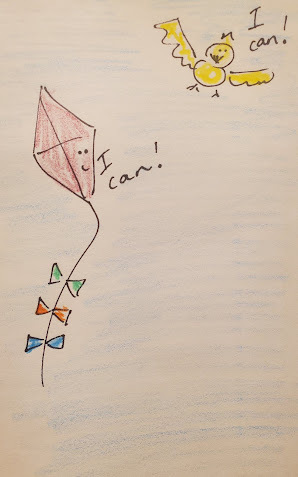 I
can!
I
can!